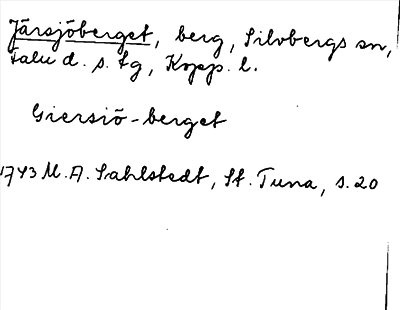 Järsjöberget, berg, Silvbergs sn,
Falu d. s. tg, Kopp. l.
Giersiö-berget
1743 M. A. Sahlstedt, St. Tuna, s. 20